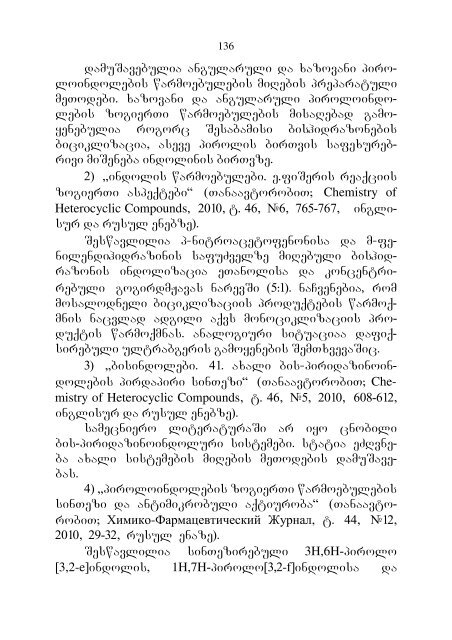 136
დამუშავებულია ანგულარული და ხაზოვანი პირო-
ლოინდოლების წარმოებულების მიღების პრეპარატული
მეთოდები. ხაზოვანი და ანგულარული პიროლოინდო-
ლების ზოგიერთი წარმოებულების მისაღებად გამო-
ყენებულია როგორც შესაბამისი ბისჰიდრაზონების
ბიციკლიზაცია, ასევე პიროლის ბირთვის საფეხურებ-
რივი მიშენება ინდოლინის ბირთვზე.
2) „ინდოლის წარმოებულები. ე.ფიშერის რეაქციის
ზოგიერთი ასპექტები“ (თანაავტორობით; Chemistry of
Heterocyclic Compounds, 2010, ტ. 46, №6, 765-767, ინგლი-
სურ და რუსულ ენებზე).
შესწავლილია პ-ნიტროაცეტოფენონისა და მ-ფე-
ნილენდიჰიდრაზინის საფუძველზე მიღებული ბისჰიდ-
რაზონის ინდოლიზაცია ეთანოლისა და კონცენტრი-
რებული გოგირდმჟავას ნარევში (5:1). ნაჩვენებია, რომ
მოსალოდნელი ბიციკლიზაციის პროდუქტების წარმოქ-
მნის ნაცვლად ადგილი აქვს მონოციკლიზაციის პრო-
დუქტის წარმოქმნას. ანალოგიური სიტუაციაა დაფიქ-
სირებული ულტრაბგერის გამოყენების შემთხვევაშიც.
3) „ბისინდოლები. 41. ახალი ბის-პირიდაზინოინ-
დოლების პირდაპირი სინთეზი“ (თანაავტორობით; Che-
mistry of Heterocyclic Compounds, ტ. 46, №5, 2010, 608-612,
ინგლისურ და რუსულ ენებზე).
სამეცნიერო ლიტერატურაში არ იყო ცნობილი
ბის-პირიდაზინოინდოლური სისტემები. სტატია ეძღვნე-
ბა ახალი სისტემების მიღების მეთოდების დამუშავე-
ბას.
4) „პიროლოინდოლების ზოგიერთი წარმოებულების
სინთეზი და ანტიმიკრობული აქტიურობა“ (თანაავტო-
რობით; Химико-Фармацевтический Журнал, ტ. 44, №12,
2010, 29-32, რუსულ ენაზე).
შესწავლილია სინთეზირებული 3H,6H-პიროლო
[3,2-e]ინდოლის, 1H,7H-პიროლო[3,2-f]ინდოლისა და